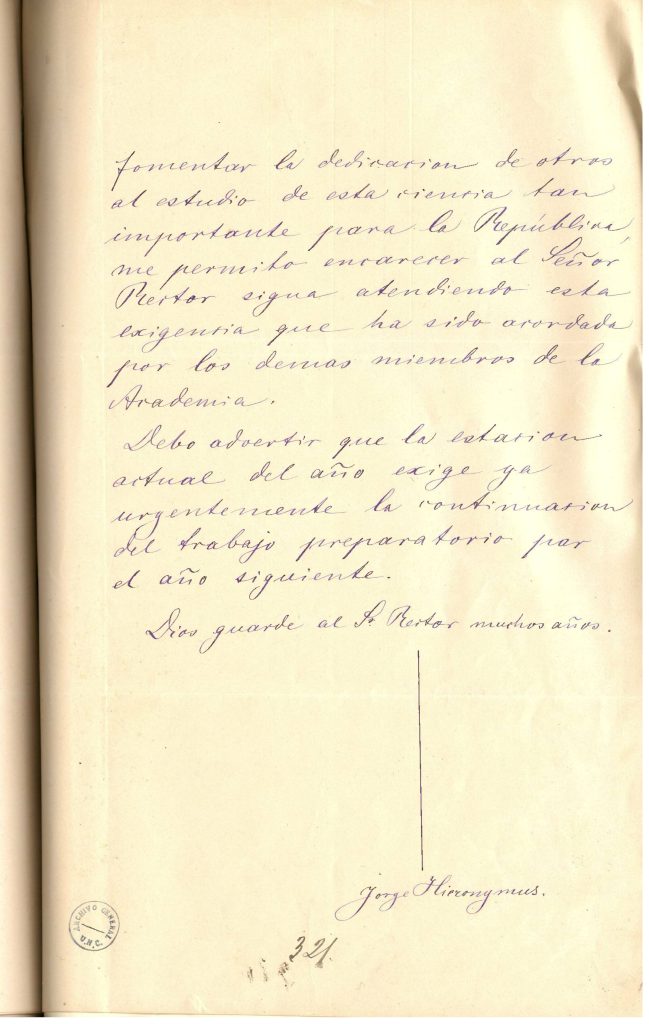 fomentar la dedicacion de otros
al estudio de esta ciencia tan
importante para la República,
me permito encarecer al Señor
Rector sigua atendiendo esta
exigencia que ha sido acordada
por los demas miembros de la
Academia.
Debo advertir que la estacion
actual del año exige ya
urgentemente la continuacion
del trabajo preparatorio par
el año siguiente.
Dios guarde al Sr Rector muchos años.
Jorge Hieronymus.
ARCHIVO GENERAL U.N.C.
321.